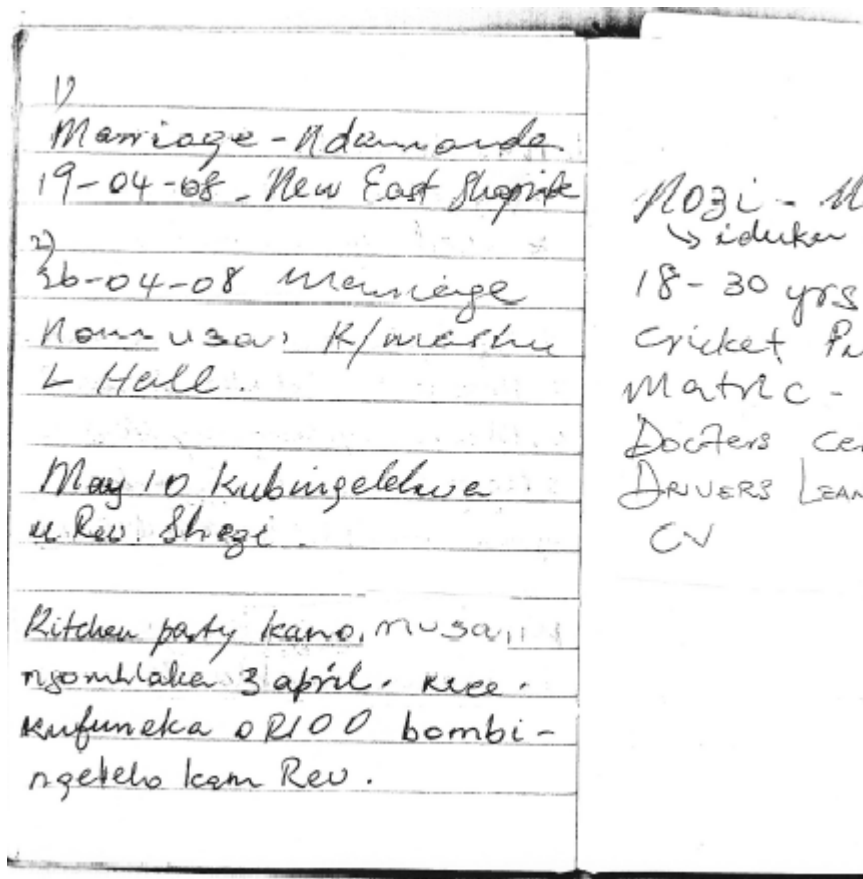 1)
Marriage - Ndamanda
19-04-08 - New East Shoprite
2)
26-04-08 Marriage
K/
L Hall.
May 10 Kubingelelwa
u Rev. Shezi.
Kitchen party kano. musa
ngomhlaka 3 april.
kufuneka o R100 bombi-
ngelelo kam Rev.
Nozi -
↳ iduku
18-30 yrs
Cricket
Matric -
Docters
DRIVERS
CV